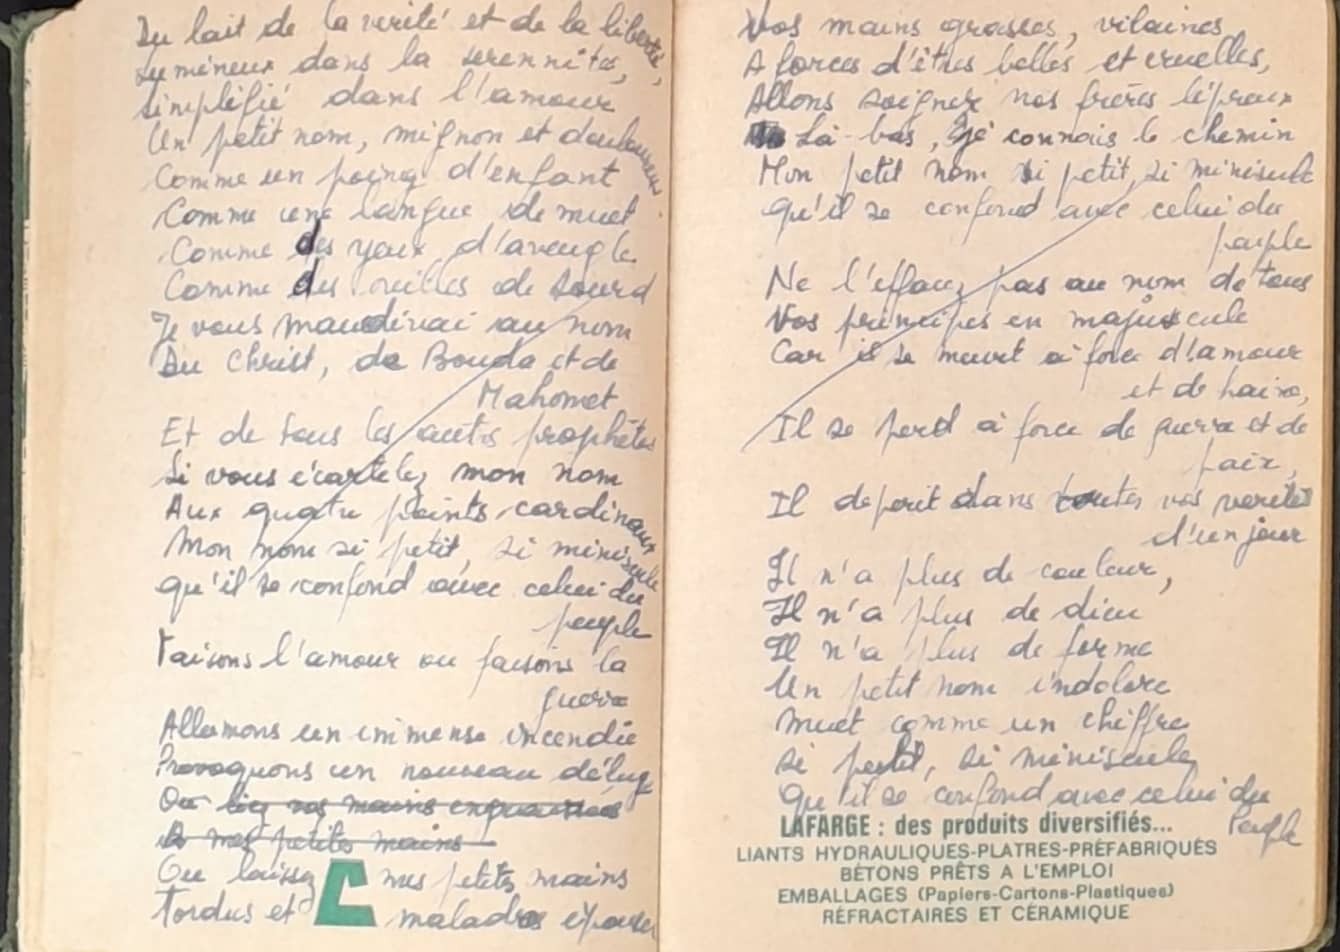 Du lait de la verité et de la liberté,
Lumineux dans la serennité,
Simpléfié dans l'amour
Un petit nom, mignon et douloureux
Comme un poing d'enfant
Comme une langue de muet.
Comme des yeux d'aveugle
Comme des oreilles de sourd
Je vous maudirai au nom
Du Christ, de Bouda et de
Mahomet
Et de tous les autres prophètes
Si vous écartelez mon nom
Aux quatre points cardinaux
Mon nom si petit, si miniscule
qu'il se confond avec celui du
peuple
Faisons l'amour ou faisons la
guerre
Allumons un immense incendie
Provoquons un nouveau déluge
Ou liez vos mains
à mes petites mains
Ou laissez mes petites mains
Tordus et malades épouser
Vos mains grasses, vilaines
A forces d'êtres belles et cruelles,
Allons soigner nos frères lépreux
Là-bas, je connais le chemin
Mon petit nom si petit, si miniscule
qu'il se confond avec celui du
peuple
Ne l'effacez pas au nom de tous
Vos principes en majuscule
Car il se meurt à force d'amour
et de haine,
Il se perd à force de guerre et de
paix,
Il deperit dans toutes vos verités
d'un jour
Il n'a plus de couleur,
Il n'a plus de dieu
Il n'a plus de forme
Un petit nom indolore
muet comme un chiffre
si petit, si miniscule
Qu'il se confond avec celui du
Peuple
LAFARGE : des produits diversifiés...
LIANTS HYDRAULIQUES-PLATRES-PRÉFABRIQUÉS
BÉTONS PRÊTS A L'EMPLOI
EMBALLAGES (Papiers-Cartons-Plastiques)
RÉFRACTAIRES ET CÉRAMIQUE